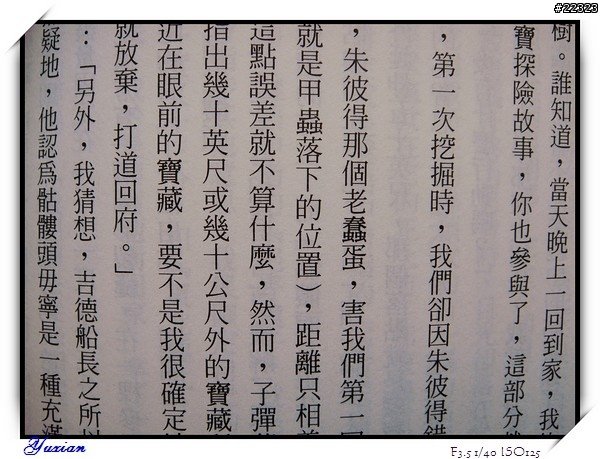 #22323
樹。誰知道，當天晚上一回到家，我
寶探險故事，你也參與了，這部分
，第一次挖掘時，我們卻因朱彼得錯
，朱彼得那個老蠢蛋，害我們第一回
就是甲蟲落下的位置），距離只相差
這點誤差就不算什麼，然而，子彈
指出幾十英尺或幾十公尺外的寶藏
近在眼前的寶藏，要不是我很確定
就放棄，打道回府。」
：「另外，我猜想，吉德船長之所以
疑地，他認為骷髏頭毋寧是一種充滿
Yuxian
F3.5 1/40 ISO125